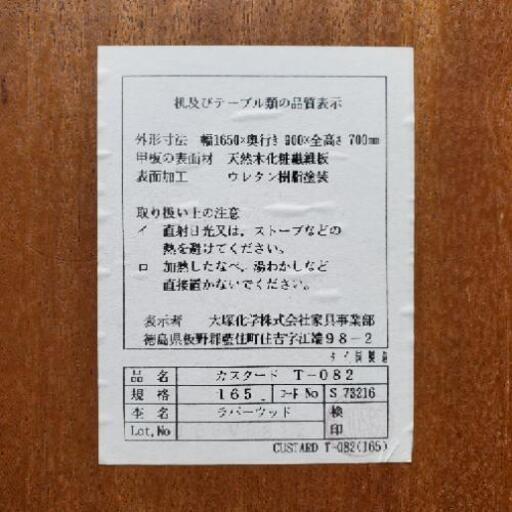 机及びテーブル類の品質表示
外形寸法 幅1650×奥行き 900×全高さ 700mm
甲板の表面材 天然木化粧繊維板
表面加工 ウレタン樹脂塗装
取り扱い上の注意
イ 直射日光又は、ストーブなどの
熱を避けてください。
ロ 加熱したなべ、湯わかしなど
直接置かないでください。
表示者 大塚化学株式会社家具事業部
徳島県板野郡藍住町住吉字江端98-2
タイ国製造
品名 カスタード T-082
規格 165 コードNo S 73216
木名 ラバーウッド 検
Lot.No 印
CUSTARD T-082(165)